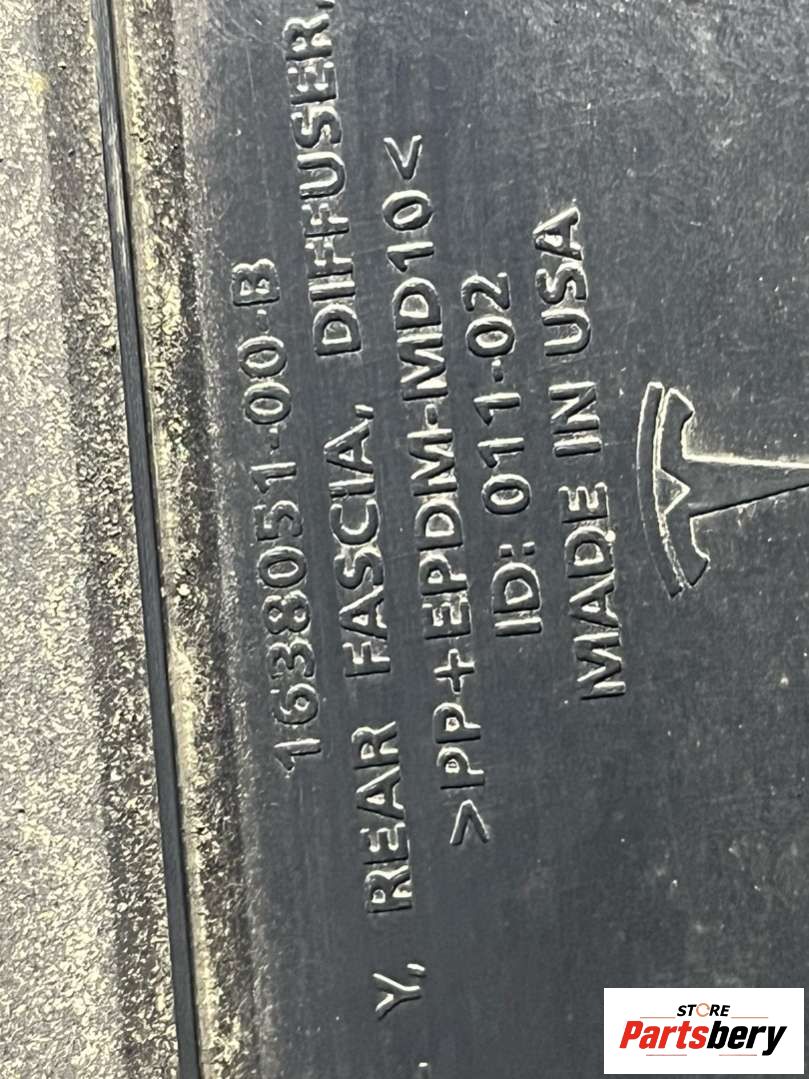 1638051-00-B
Y, REAR FASCIA, DIFFUSER,
>PP+EPDM-MD10<
ID: 011-02
MADE IN USA
STORE
Partsbery